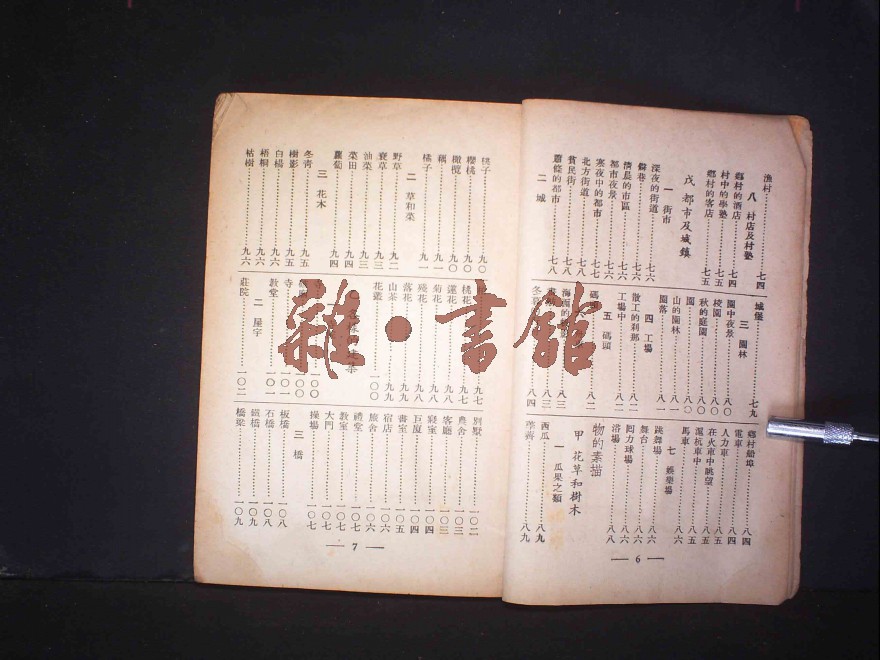 漁村……七四
八 村店及村塾
鄉村的酒店……七四
村中的學塾……七五
鄉村的客店……七五
戊 都市及城鎮
一 街市
深夜的街道……七六
僻巷……七六
清晨的市區……七六
都市夜景……七六
寒夜中的都市……七七
北方街道……七七
貧民街……七八
蕭條的都市……七八
二 城
城堡……七九
三 園林
園中夜景……八〇
校園……八〇
秋的庭園……八〇
園……八〇
山的園林……八一
園落……八一
四 工場
散工的刹那……八二
工場中……八二
五 碼頭
碼頭……八二
八三
八三
八四
鄉村船埠……八四
電車……八四
人力車……八五
在火車中眺望……八五
滬杭車中……八五
馬車……八六
七 娛樂場
跳舞場……八六
舞台……八六
回力球場……八六
浴場……八八
物的素描
甲 花草和樹木
一 瓜果之類
西瓜……八九
荸薺……八九
— 6 —
桃子……九〇
櫻桃……九〇
橄欖……九〇
藕……九一
橘子……九一
二 草和菜
野草……九二
蓑草……九三
油菜……九三
菜田……九四
蘿蔔……九四
三 花木
冬青……九五
樹影……九五
白楊……九六
梧桐……九六
枯樹……九六
桃花……九七
蓮花……九七
菊花……九八
殘花……九八
落花……九九
山茶……九九
花叢……一〇〇
一〇〇
一〇〇
寺……一〇一
教堂……一〇一
二 屋宇
莊院……一〇二
別墅……一〇二
農舍……一〇三
客廳……一〇三
寢室……一〇四
巨廈……一〇四
書室……一〇五
宿店……一〇六
旅舍……一〇六
禮堂……一〇七
教室……一〇七
大門……一〇七
操場……一〇七
三 橋
板橋……一〇八
石橋……一〇八
鐵橋……一〇九
橋梁……一〇九
— 7 —
雜·書館